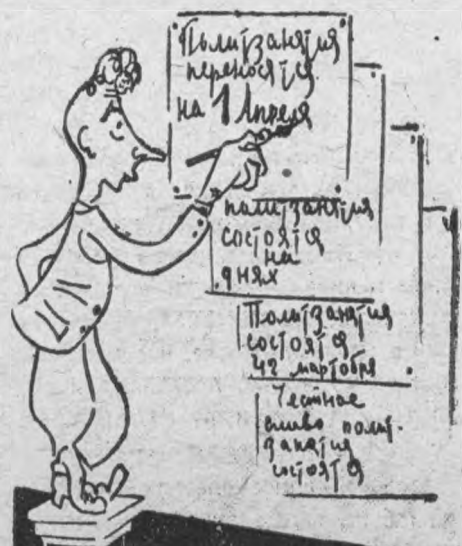 Политзанятия
переносятся
на 1 Апреля
политзанятия
состоятся
на
днях
Политзанятия
состоятся
42 мартобря
Честное
слово полит-
занятия
состоятся